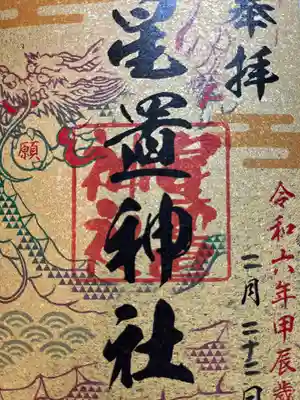 奉拝
星置神社
令和六年甲辰歳
二月二十二日
願
星置神社